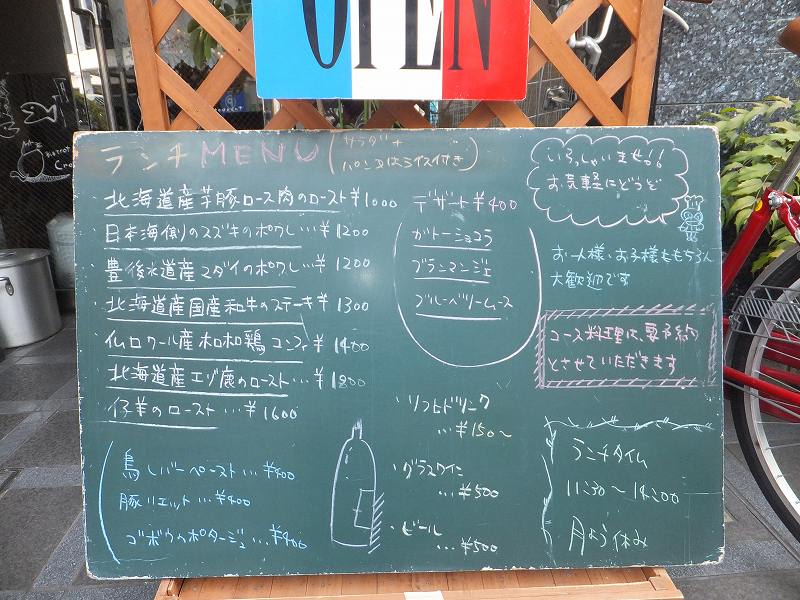 OPEN
ランチMENU (サラダ+
パン又はライス付き)
・北海道産芋豚ロース肉のロースト¥1000
・日本海側のスズキのポワレ…¥1200
・豊後水道産マダイのポワレ…¥1200
・北海道産国産和牛のステーキ¥1300
・仏ロワール産 鶏コンフィ ¥1400
・北海道産エゾ鹿のロースト…¥1800
・仔羊のロースト…¥1600
鳥レバーペースト…¥400
豚リエット…¥400
ゴボウのポタージュ…¥400
デザート¥400
ガトーショコラ
ブランマンジェ
ブルーベリームース
・ソフトドリンク
…¥150〜
・グラスワイン
…¥500
・ビール
…¥500
いらっしゃいませ!!
お気軽にどうぞ
お一人様、お子様ももちろん
大歓迎です
コース料理は、要予約
とさせていただきます
ランチタイム
11:30〜14:00
月よう休み